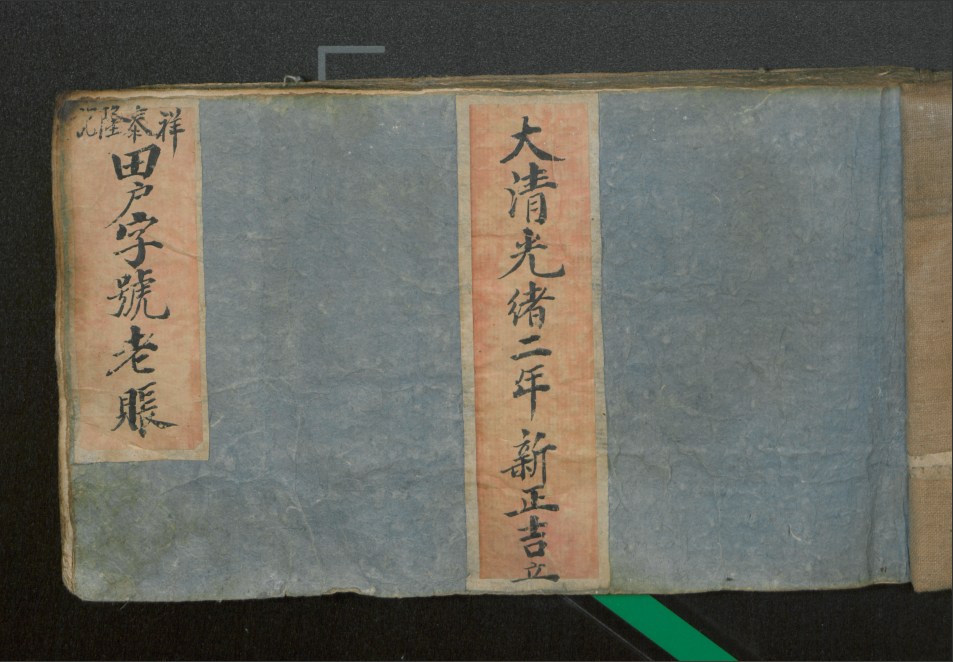 大清光緒二年新正吉立
祥泰隆記
田户字號老賬